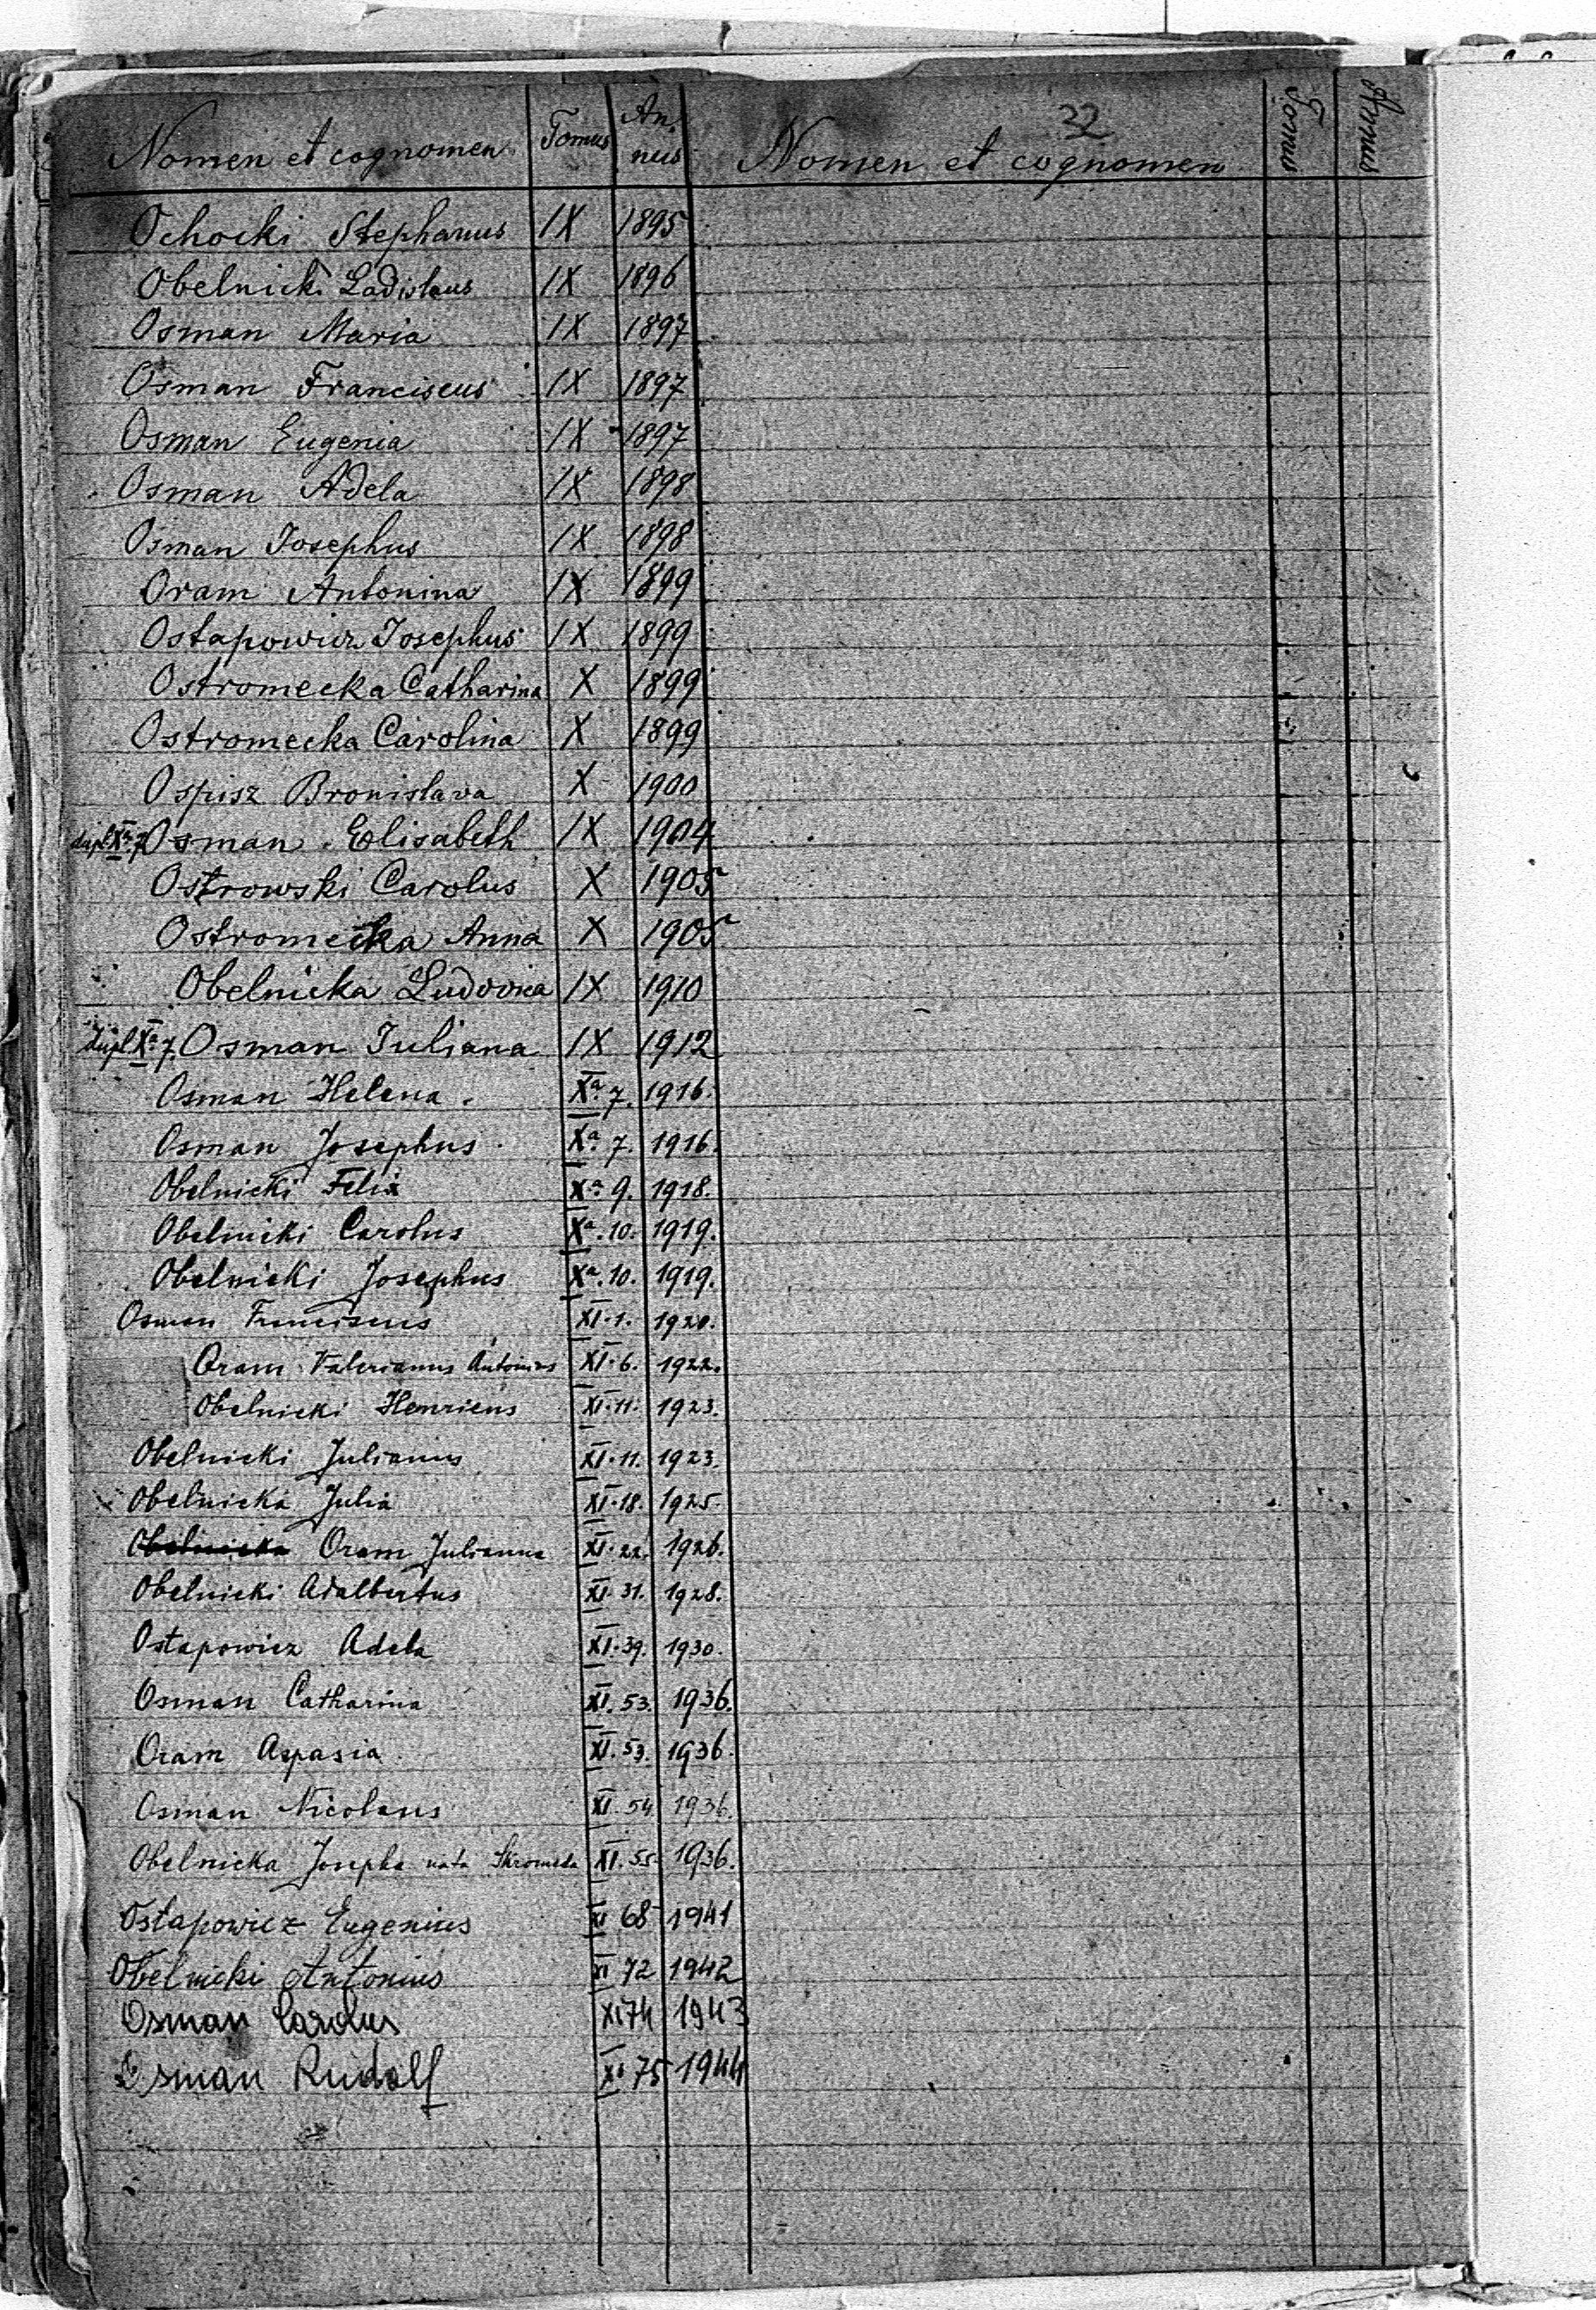 32
Nomen et cognomen Tomus Annus Nomen et cognomen Tomus Annus
Ochocki Stephanus IX 1895
Obelnicki Ladislaus IX 1896
Osman Maria IX 1897
Osman Franciscus IX 1897
Osman Eugenia IX 1897
Osman Adela IX 1898
Osman Josephus IX 1898
Oram Antonina IX 1899
Ostapowicz Josephus IX 1899
Ostromecka Catharina X 1899
Ostromecka Carolina X 1899
Ospisz Bronislava X 1900
dupl. Xa. 7. Osman Elisabeth IX 1904
Ostrowski Carolus X 1905
Ostromecka Anna X 1905
Obelnicka Ludovica IX 1910
dupl. Xa. 7. Osman Juliana IX 1912
Osman Helena. Xa. 7. 1916.
Osman Josephus Xa. 7. 1916.
Obelnicki Felix Xa. 9. 1918.
Obelnicki Carolus Xa. 10. 1919.
Obelnicki Josephus Xa. 10. 1919.
Osman Franciscus XI. 1. 1920.
Oram Valerianus Antonius XI. 6. 1922.
Obelnicki Henricus XI. 11. 1923.
Obelnicki Julianus XI. 11. 1923.
Obelnicka Julia XI. 18. 1925.
Obelnicka Oram Julianna XI. 22. 1926.
Obelnicki Adalbertus XI. 31. 1928.
Ostapowicz Adela XI. 39. 1930.
Osman Catharina XI. 53. 1936.
Oram Aspasia XI. 53. 1936.
Osman Nicolaus XI. 54. 1936.
Obelnicka Josepha nata Skromeda XI. 55. 1936.
Ostapowicz Eugenius XI 68 1941
Obelnicki Antonius XI 72 1942
Osman Carolus XI 74 1943
Osman Rudolf XI 75 1944